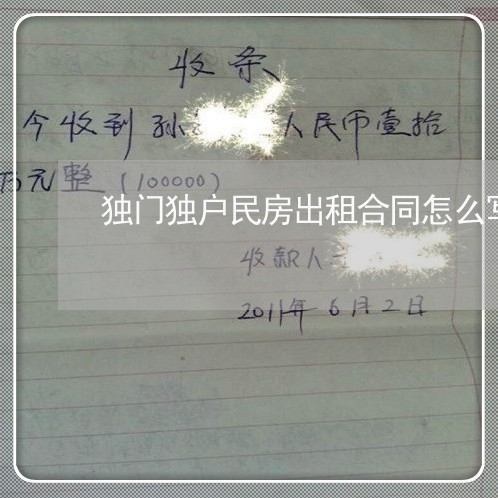 收条
今收到孙 人民币壹拾
万元整（100000）
独门独户民房出租合同怎么写
收款人
2011年6月2日